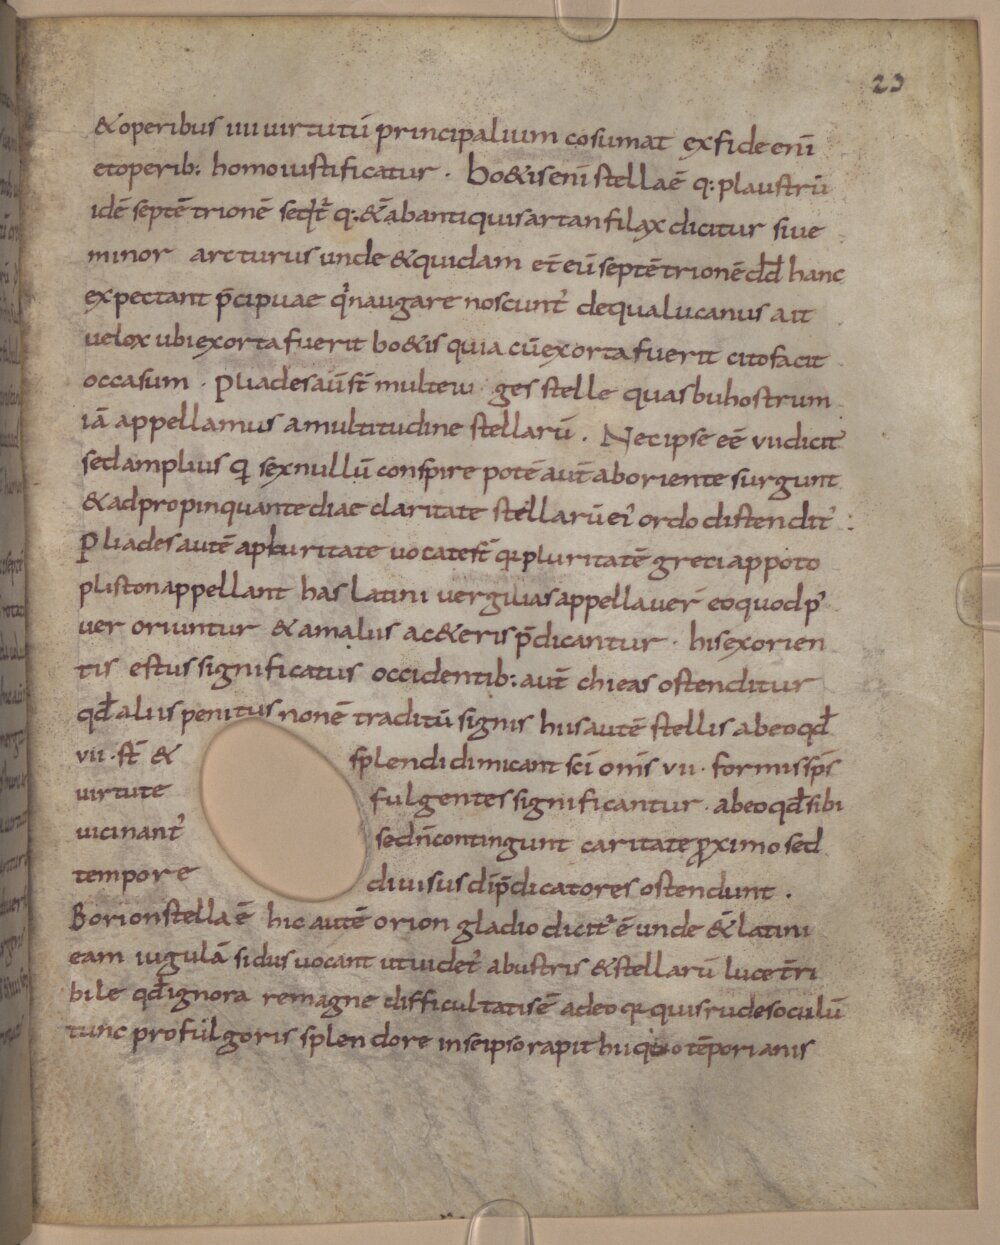 23
&operibus iiii uirtutū principalium cosumat exfide enī
etoperib: homo iustificatur . bo&iseni stellaē q: plaustrū
idē septētrionē q:&abantiquisartanfilax dicitur siue
minor arcturus unde &quidam et eū septētrionē dd hanc
expectant p̄cipuae q'naugare noscunt' dequalucanus ait
uelox ubiexortafuerit bo&is quia cūexortafuerit citofacit
occasum . Pliadesaūst̄ multew ges stelle quasbuhostrum
iā appellamus amultitudine stellarū . Nec ipse eē vii dicit'
sedamplius q sexnullū conspire potē aut̄ aboriente surgunt
&adpropinquantediae claritate stellarū ei' ordo distendit' :
Pliadesautē apluritate uocatest̄ q pluritatē greciappoto
plistonappellant has latini uergiliasappellauer̄ eoquodp'
uer oriuntur &amalus ac&eris p̄dicantur . hisexorien
tis estus significatus occidentib: aut̄ chieas ostenditur
qd̄ aliis penitus nonē traditū signis hiis autē stellis abeoqd̄
vii . st̄ & splendidimicant sc̄i om̄s vii . formis sp̄s
uirtute fulgentes significantur . abeoqd̄sibi
uicinant' sedn̄contingunt caritate proximo sed
tempore diuisus di p̄dicatores ostendunt .
Borionstella ē hic autē orion gladio dicit' ē unde &latini
eam iugulā sidus uocant utuidet' abustris &stellarū luce tr̄ri
bile qd̄ignora remagne difficultatisē adeo q quisrudesoculū
tunc profulgoris splendore inseipsorapit tēpori anis